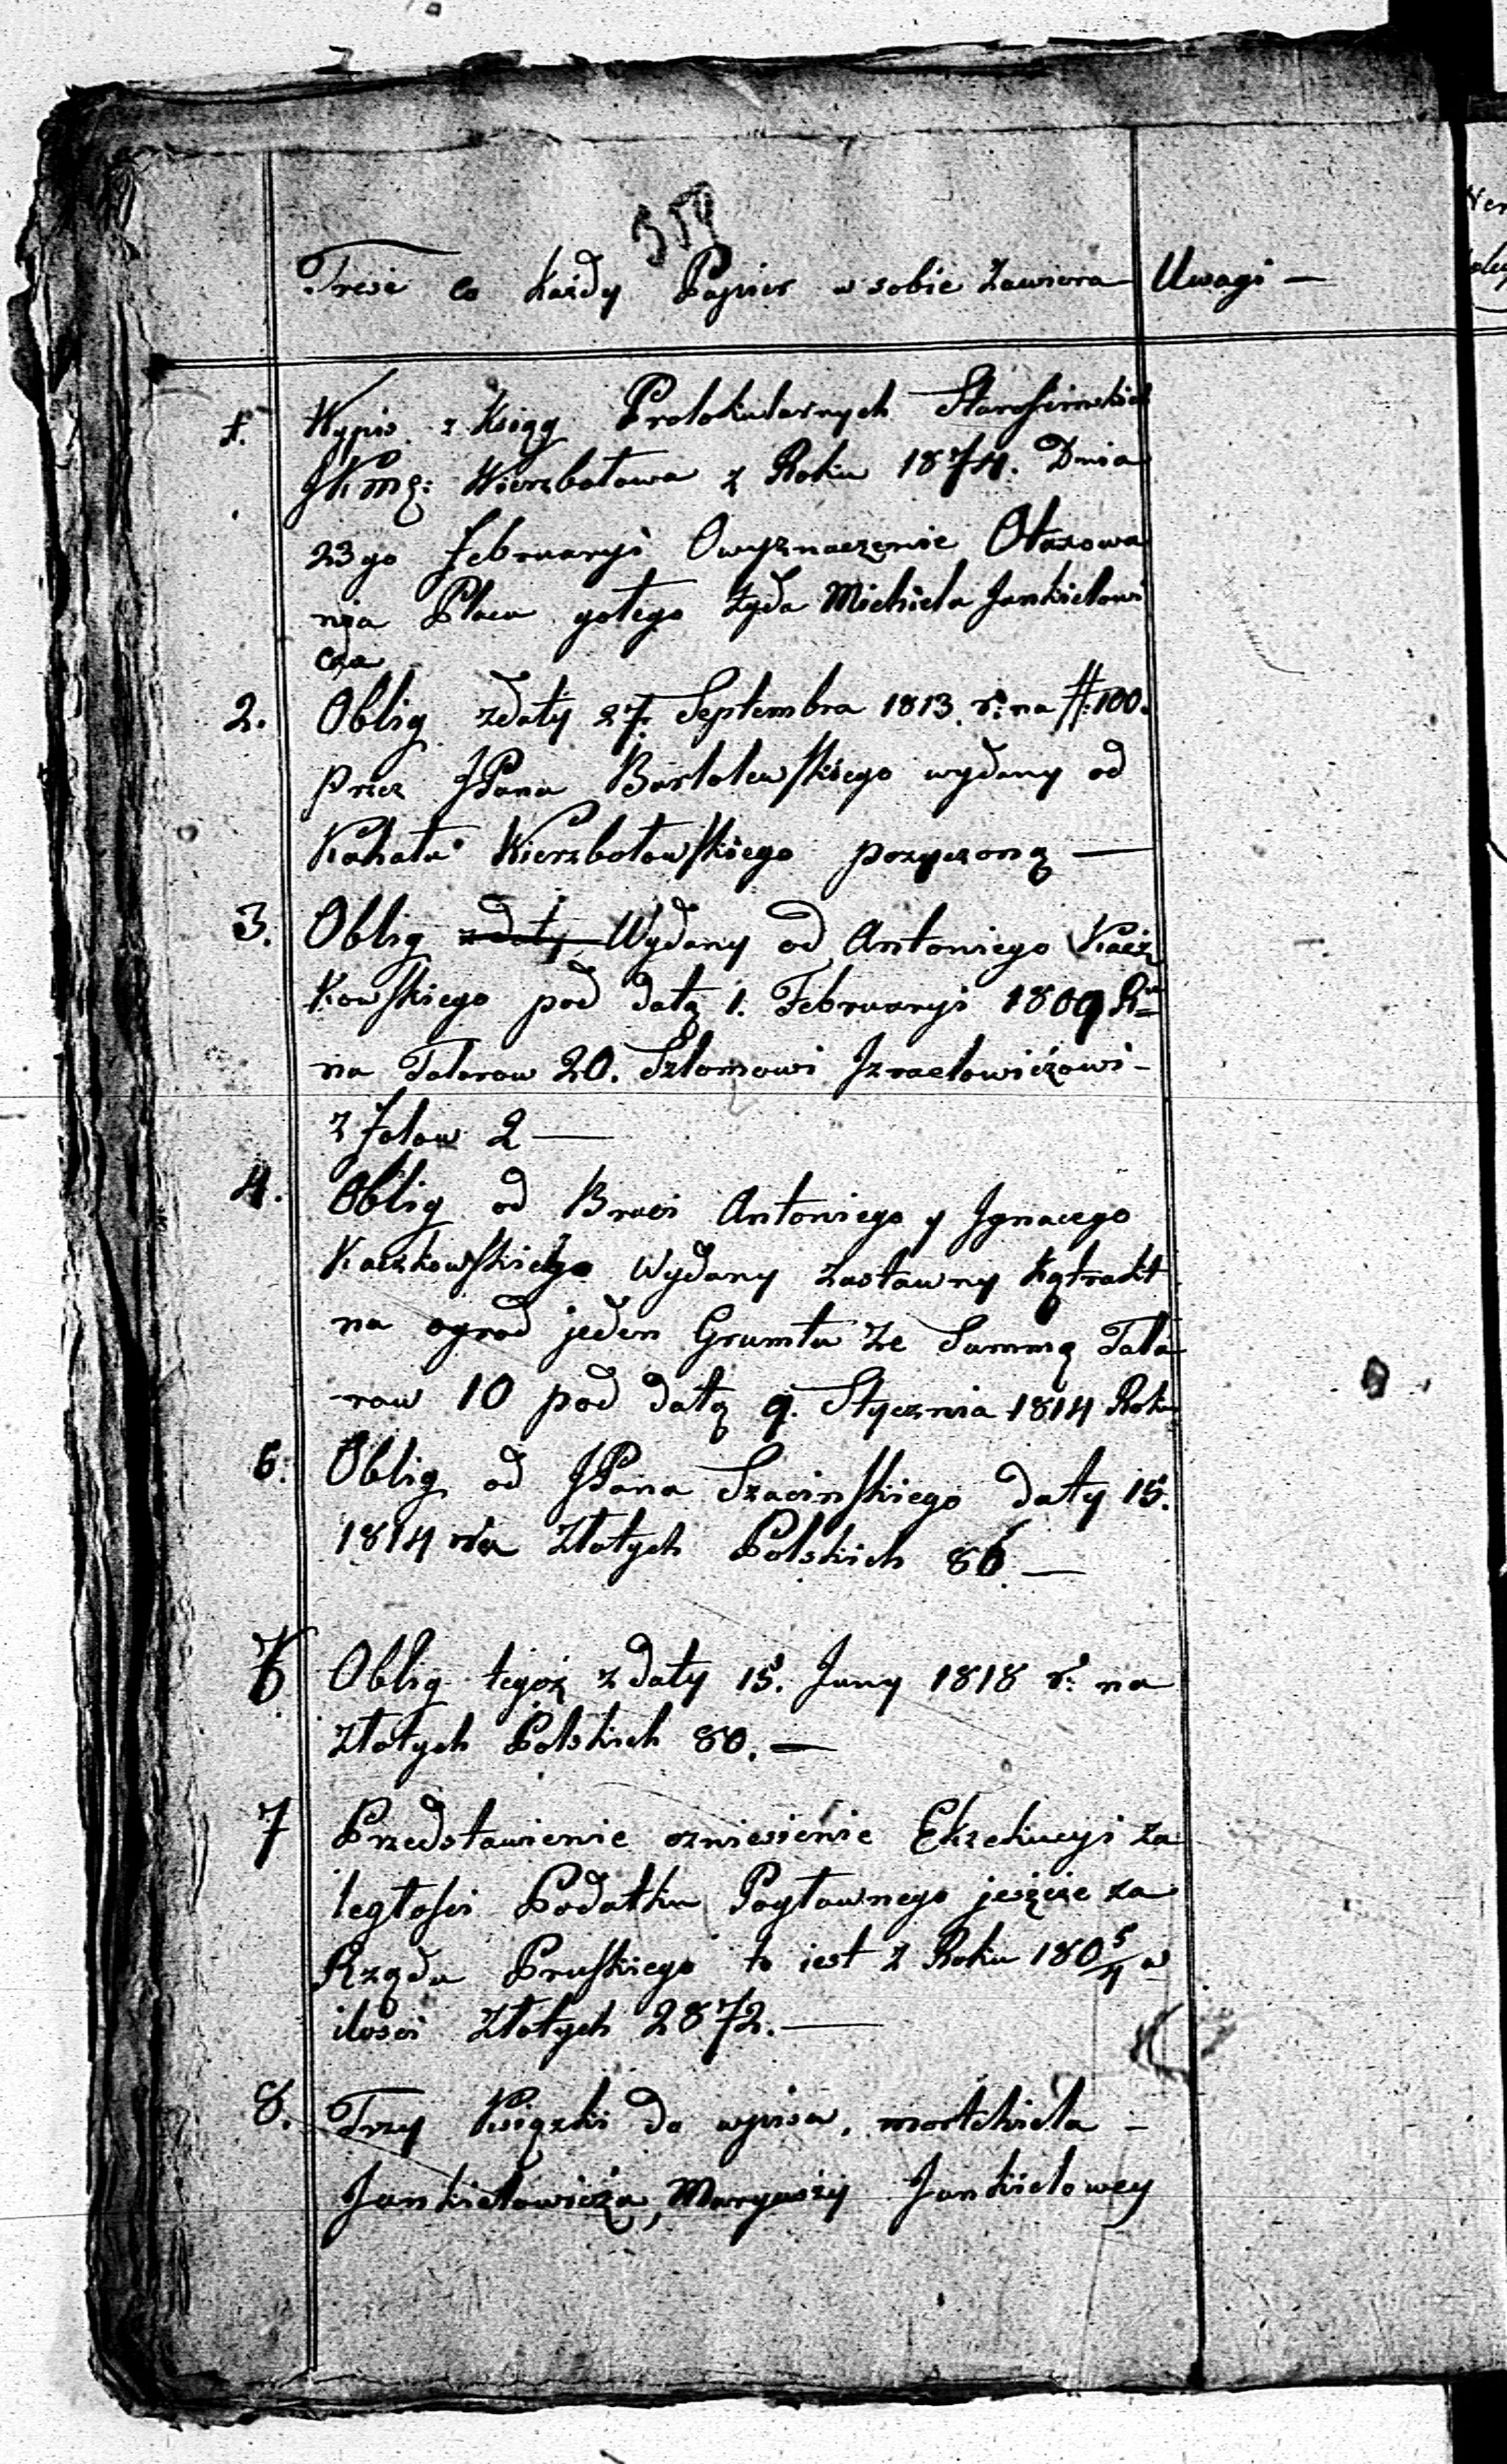 359
Treść co każdy Papier w sobie zawiera Uwagi —
1. Wypis z Ksiąg Protokularnych
JKMę: Wierzbołowa z Roku 1874. Dnia
23go Februaryi Owyznaczenie Otaxowa
nia Placu gołego żyda Michiela Jankielowi
cza
2. Oblig zdaty 27. Septembra 1813. r: na #: 100.
przez JPana Bartolewskiego wydany od
Kahału Wierzbołowskiego pozyczoną —
3. Oblig zdaty Wydany od Antoniego Kacz
kowskiego pod datą 1. Februaryi 1809 Ru
na Talarow 20. Szlomowi Jzraelowiczowi -
z 2 —
4. Oblig od Braci Antoniego y Jgnacego
Kaczkowskiego Wydany zastawny kątrakt
na ogrod jeden Gruntu ze Summą Tala
row 10 pod datą 9. Stycznia 1814 Roku
5. Oblig od JPana Szacinskiego daty 15.
1814 na Złotych Polskich 86 —
6 Oblig tegoż z daty 15. Juny 1818 r: na
Złotych Polskich 80. —
7 Przedstawienie ozniesienie Ekzekucyi za
ległości Podatku Pogłownego jeszcze za
Rządu Pruskiego to iest z Roku 180 5/4 w
ilości Złotych 2872. —
8. Trzy Książki do wpisu, mortchiela -
Jankielowicza, Maryaszy Jankielowey